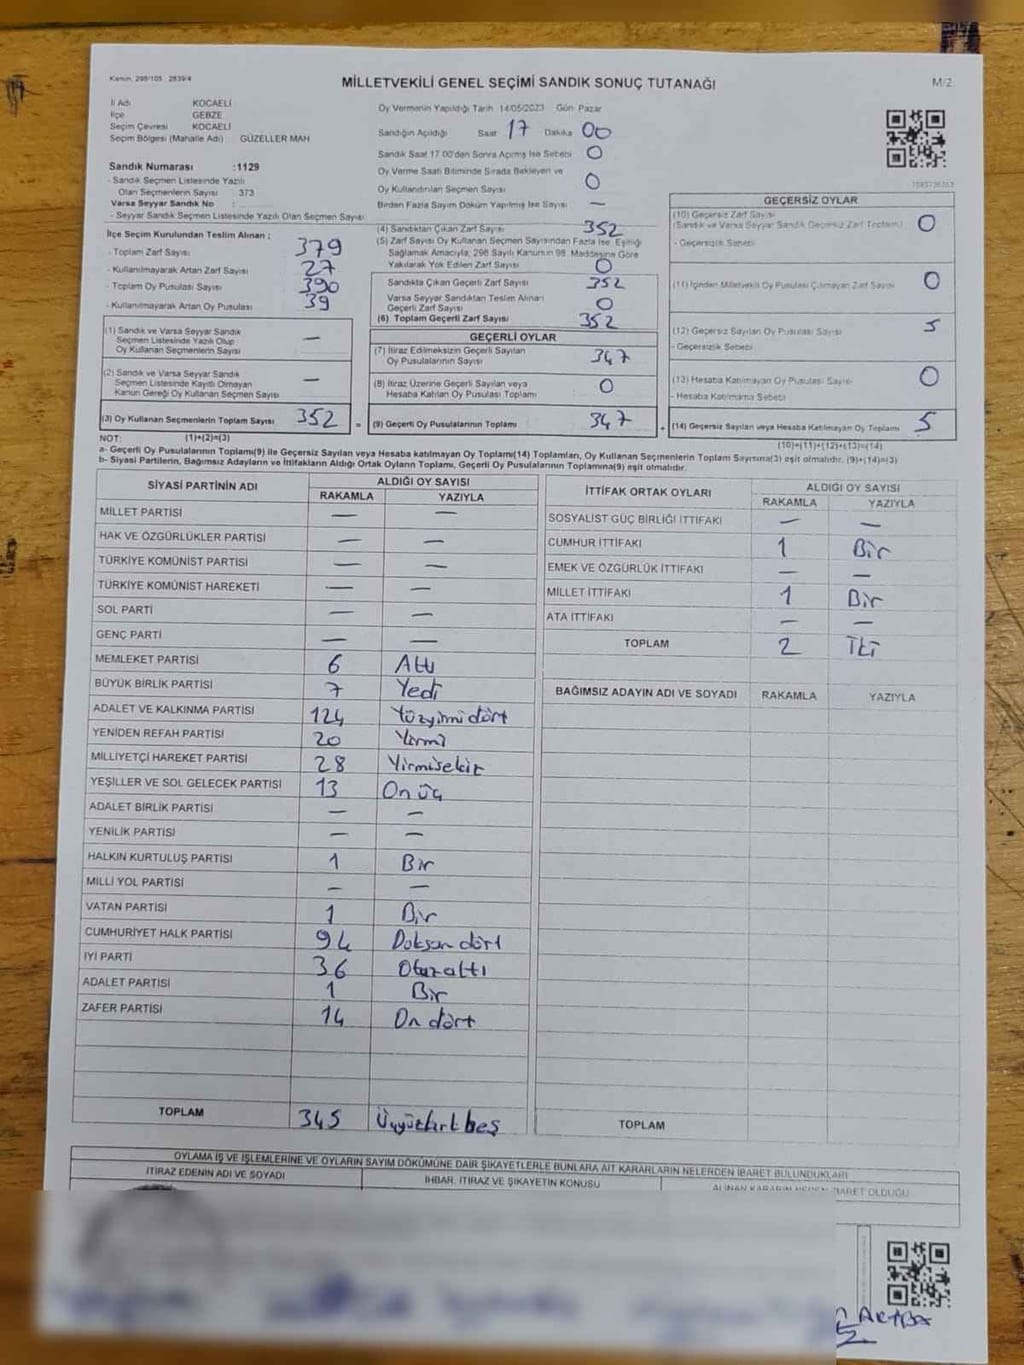 Kanun, 298/105 2839/4
MİLLETVEKİLİ GENEL SEÇİMİ SANDIK SONUÇ TUTANAĞI
M/2
İl Adı KOCAELİ
İlçe GEBZE
Seçim Çevresi KOCAELİ
Seçim Bölgesi (Mahalle Adı) GÜZELLER MAH
Sandık Numarası :1129
- Sandık Seçmen Listesinde Yazılı
Olan Seçmenlerin Sayısı : 373
Varsa Seyyar Sandık No :
- Seyyar Sandık Seçmen Listesinde Yazılı Olan Seçmen Sayısı
Oy Vermenin Yapıldığı Tarih 14/05/2023 Gün Pazar
Sandığın Açıldığı Saat 17 Dakika 00
Sandık Saat 17.00'den Sonra Açılmış İse Sebebi 0
Oy Verme Saati Bitiminde Sırada Bekleyen ve
Oy Kullandırılan Seçmen Sayısı 0
Birden Fazla Sayım Döküm Yapılmış İse Sayısı —
İlçe Seçim Kurulundan Teslim Alınan :
- Toplam Zarf Sayısı 379
- Kullanılmayarak Artan Zarf Sayısı 27
- Toplam Oy Pusulası Sayısı 390
- Kullanılmayarak Artan Oy Pusulası 39
(1) Sandık ve Varsa Seyyar Sandık
Seçmen Listesinde Yazılı Olup
Oy Kullanan Seçmenlerin Sayısı —
(2) Sandık ve Varsa Seyyar Sandık
Seçmen Listesinde Kayıtlı Olmayan
Kanun Gereği Oy Kullanan Seçmen Sayısı —
(3) Oy Kullanan Seçmenlerin Toplam Sayısı 352 =
(4) Sandıktan Çıkan Zarf Sayısı 352
(5) Zarf Sayısı Oy Kullanan Seçmen Sayısından Fazla İse, Eşitliği
Sağlamak Amacıyla, 298 Sayılı Kanunun 98. Maddesine Göre
Yakılarak Yok Edilen Zarf Sayısı 0
Sandıkta Çıkan Geçerli Zarf Sayısı 352
Varsa Seyyar Sandıktan Teslim Alınan
Geçerli Zarf Sayısı 0
(6) Toplam Geçerli Zarf Sayısı 352
GEÇERLİ OYLAR
(7) İtiraz Edilmeksizin Geçerli Sayılan
Oy Pusulalarının Sayısı 347
(8) İtiraz Üzerine Geçerli Sayılan veya
Hesaba Katılan Oy Pusulası Toplamı 0
(9) Geçerli Oy Pusulalarının Toplamı 347 +
GEÇERSİZ OYLAR
(10) Geçersiz Zarf Sayısı 0
(Sandık ve Varsa Seyyar Sandık Geçersiz Zarf Toplamı)
- Geçersizlik Sebebi
(11) İçinden Milletvekili Oy Pusulası Çıkmayan Zarf Sayısı 0
(12) Geçersiz Sayılan Oy Pusulası Sayısı 5
- Geçersizlik Sebebi
(13) Hesaba Katılmayan Oy Pusulası Sayısı 0
- Hesaba Katılmama Sebebi
(14) Geçersiz Sayılan veya Hesaba Katılmayan Oy Toplamı 5
NOT: (1)+(2)=(3) (10)+(11)+(12)+(13)=(14)
a- Geçerli Oy Pusulalarının Toplamı(9) ile Geçersiz Sayılan veya Hesaba katılmayan Oy Toplamı(14) Toplamları, Oy Kullanan Seçmenlerin Toplam Sayısına(3) eşit olmalıdır. (9)+(14)=(3)
b- Siyasi Partilerin, Bağımsız Adayların ve İttifakların Aldığı Ortak Oyların Toplamı, Geçerli Oy Pusulalarının Toplamına(9) eşit olmalıdır.
SİYASİ PARTİNİN ADI ALDIĞI OY SAYISI
RAKAMLA YAZIYLA
MİLLET PARTİSİ — —
HAK VE ÖZGÜRLÜKLER PARTİSİ — —
TÜRKİYE KOMÜNİST PARTİSİ — —
TÜRKİYE KOMÜNİST HAREKETİ — —
SOL PARTİ — —
GENÇ PARTİ — —
MEMLEKET PARTİSİ 6 Altı
BÜYÜK BİRLİK PARTİSİ 7 Yedi
ADALET VE KALKINMA PARTİSİ 124 Yüzyirmidört
YENİDEN REFAH PARTİSİ 20 Yirmi
MİLLİYETÇİ HAREKET PARTİSİ 28 Yirmisekiz
YEŞİLLER VE SOL GELECEK PARTİSİ 13 On üç
ADALET BİRLİK PARTİSİ — —
YENİLİK PARTİSİ — —
HALKIN KURTULUŞ PARTİSİ 1 Bir
MİLLİ YOL PARTİSİ — —
VATAN PARTİSİ 1 Bir
CUMHURİYET HALK PARTİSİ 94 Doksan dört
İYİ PARTİ 36 Otuzaltı
ADALET PARTİSİ 1 Bir
ZAFER PARTİSİ 14 On dört
TOPLAM 345 Üçyüzkırkbeş
İTTİFAK ORTAK OYLARI ALDIĞI OY SAYISI
RAKAMLA YAZIYLA
SOSYALİST GÜÇ BİRLİĞİ İTTİFAKI — —
CUMHUR İTTİFAKI 1 Bir
EMEK VE ÖZGÜRLÜK İTTİFAKI — —
MİLLET İTTİFAKI 1 Bir
ATA İTTİFAKI — —
TOPLAM 2 İki
BAĞIMSIZ ADAYIN ADI VE SOYADI RAKAMLA YAZIYLA
TOPLAM
OYLAMA İŞ VE İŞLEMLERİNE VE OYLARIN SAYIM DÖKÜMÜNE DAİR ŞİKAYETLERLE BUNLARA AİT KARARLARIN NELERDEN İBARET BULUNDUKLARI
İTİRAZ EDENİN ADI VE SOYADI İHBAR, İTİRAZ VE ŞİKAYETİN KONUSU ALINAN KARARIN NEDEN İBARET OLDUĞU